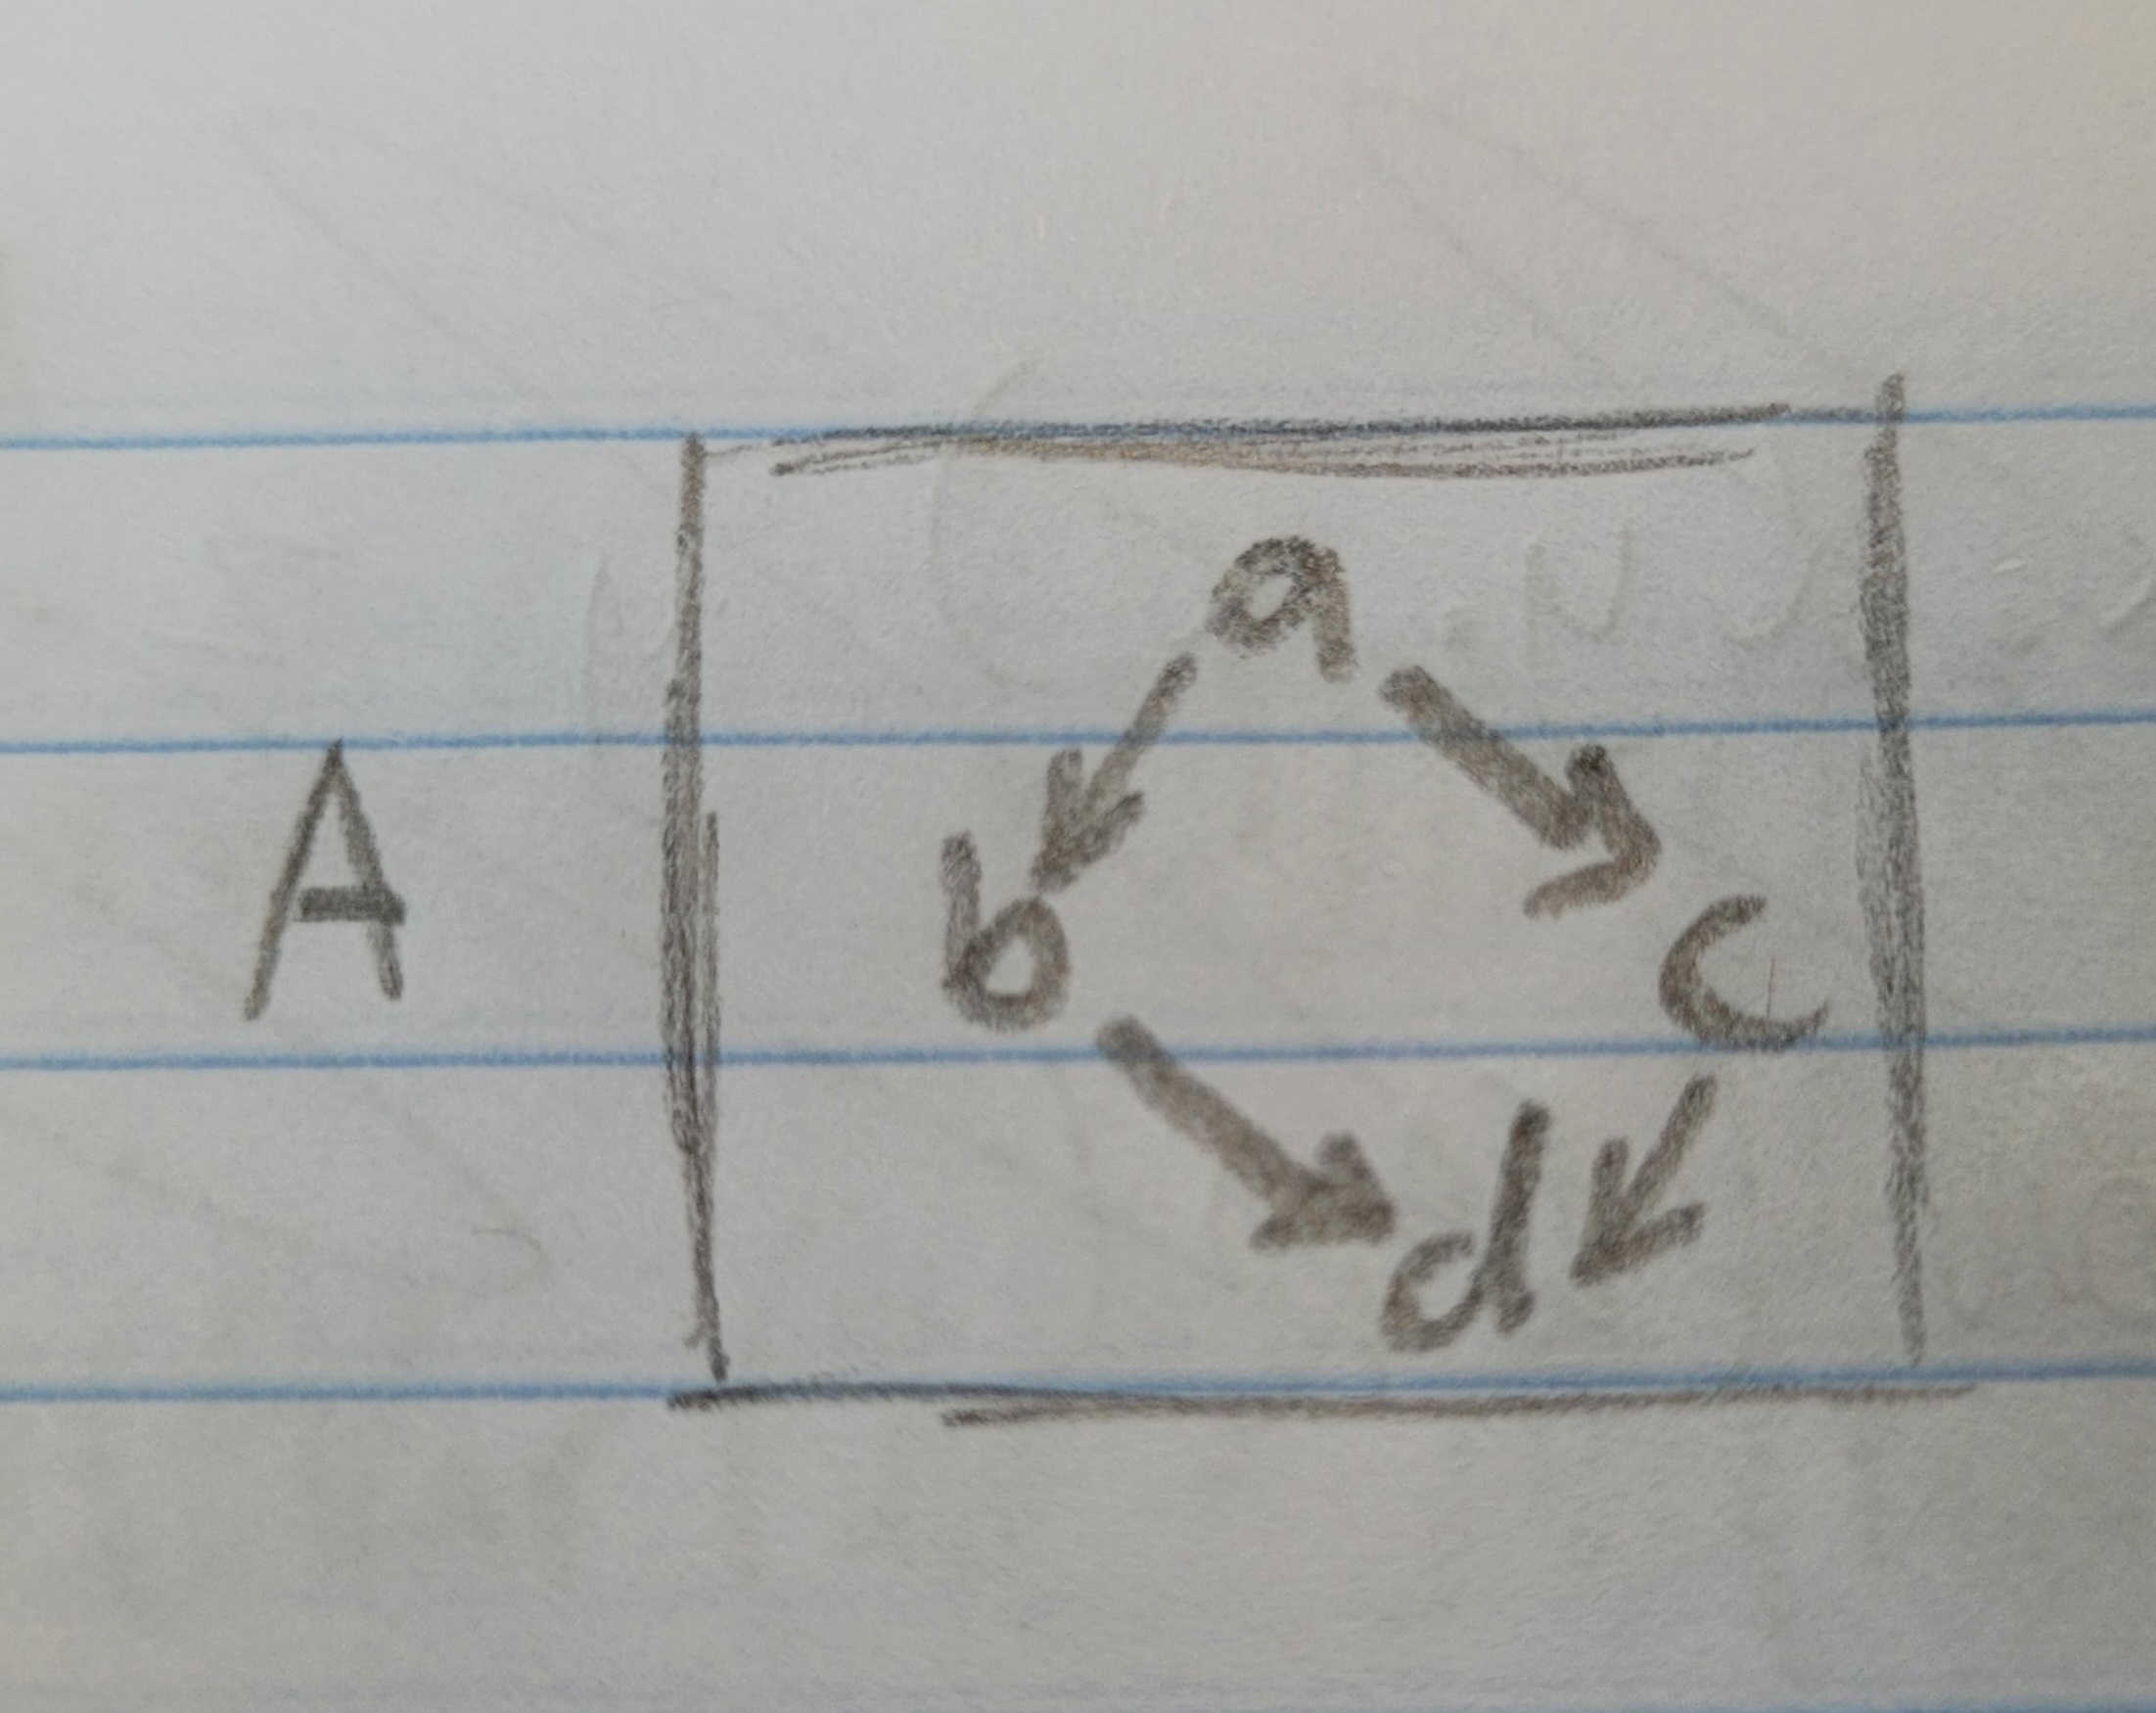 a
A
b
c
d